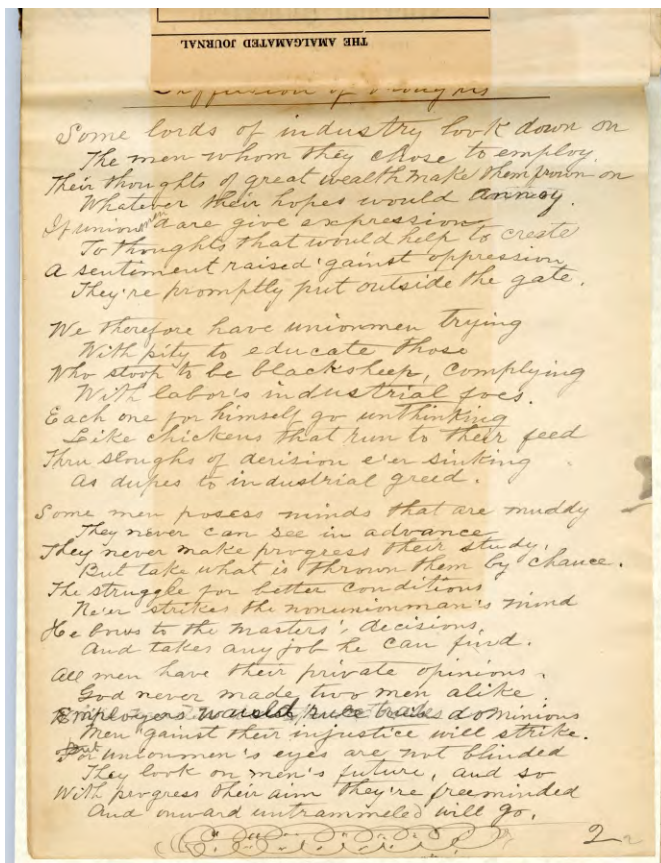 THE AMALGAMATED JOURNAL
of Thoughts
Some lords of industry look down on
The men whom they chose to employ.
Their thoughts of great wealth make them frown on
Whatever their hopes would annoy.
If union men dare give expression
To thoughts that would help to create
A sentiment raised 'gainst oppression
They're promptly put outside the gate.
We therefore have unionmen trying
With pity to educate those
Who stoop to be blacksheep, complying
With labor's industrial foes.
Each one for himself go unthinking
Like chickens that run to their feed
Thru sloughs of derision e'er sinking
As dupes to industrial greed.
Some men posess minds that are muddy
They never can see in advance
They never make progress their study,
But take what is thrown them by chance.
The struggle for better conditions
Ne'er strikes the nonunionman's mind
He bows to the masters', decisions,
And takes any job he can find.
All men have their private opinions,
God never made two men alike
Employers would rule dominions
Men 'gainst their injustice will strike.
But unionmen's eyes are not blinded
They look on men's future, and so
With progress their aim they're freeminded
And onward untrammeled will go.
2